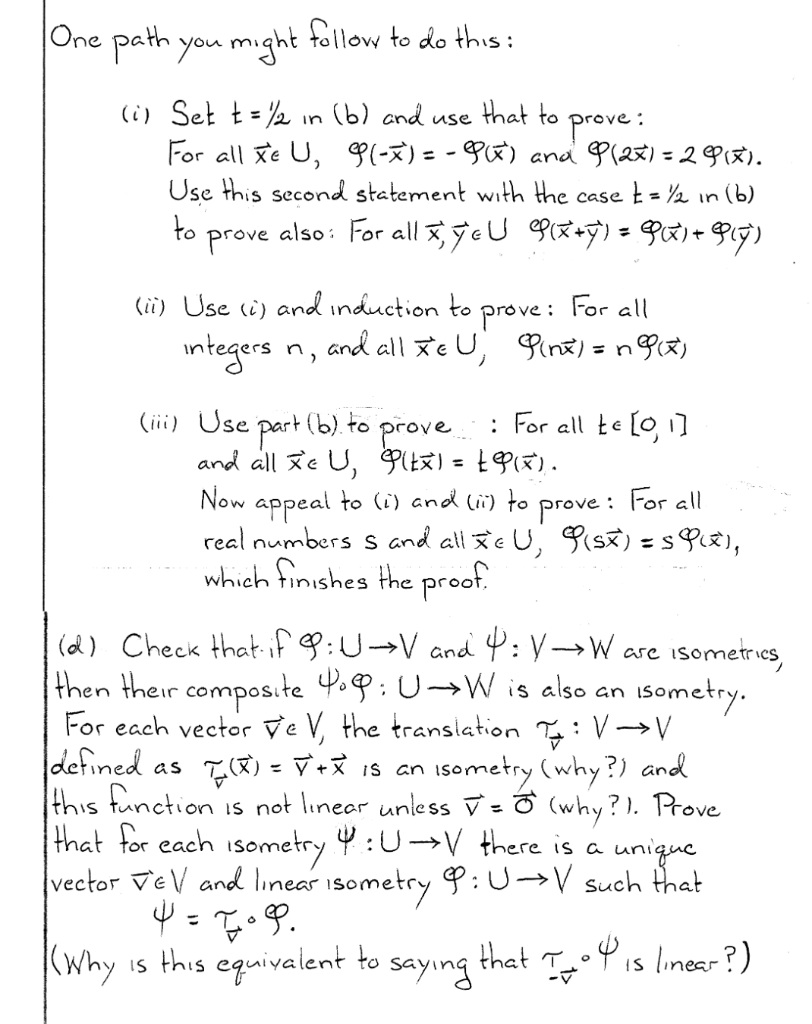 One path you might follow to do this :
(i) Set t = 1/2 in (b) and use that to prove :
For all x⃗ ∈ U, φ(-x⃗) = - φ(x⃗) and φ(2x⃗) = 2 φ(x⃗).
Use this second statement with the case t = 1/2 in (b)
to prove also : For all x⃗, y⃗ ∈ U φ(x⃗+y⃗) = φ(x⃗) + φ(y⃗)
(ii) Use (i) and induction to prove : For all
integers n, and all x⃗ ∈ U, φ(nx⃗) = n φ(x⃗)
(iii) Use part (b) to prove : For all t ∈ [0, 1]
and all x⃗ ∈ U, φ(tx⃗) = t φ(x⃗).
Now appeal to (i) and (ii) to prove : For all
real numbers s and all x⃗ ∈ U, φ(sx⃗) = s φ(x⃗),
which finishes the proof.
(d) Check that if φ : U → V and ψ : V → W are isometries,
then their composite ψ∘φ : U → W is also an isometry.
For each vector v⃗ ∈ V, the translation τ_v⃗ : V → V
defined as τ_v⃗(x⃗) = v⃗ + x⃗ is an isometry (why?) and
this function is not linear unless v⃗ = 0⃗ (why?). Prove
that for each isometry ψ : U → V there is a unique
vector v⃗ ∈ V and linear isometry φ : U → V such that
ψ = τ_v⃗ ∘ φ.
(Why is this equivalent to saying that τ_-v⃗ ∘ ψ is linear?)